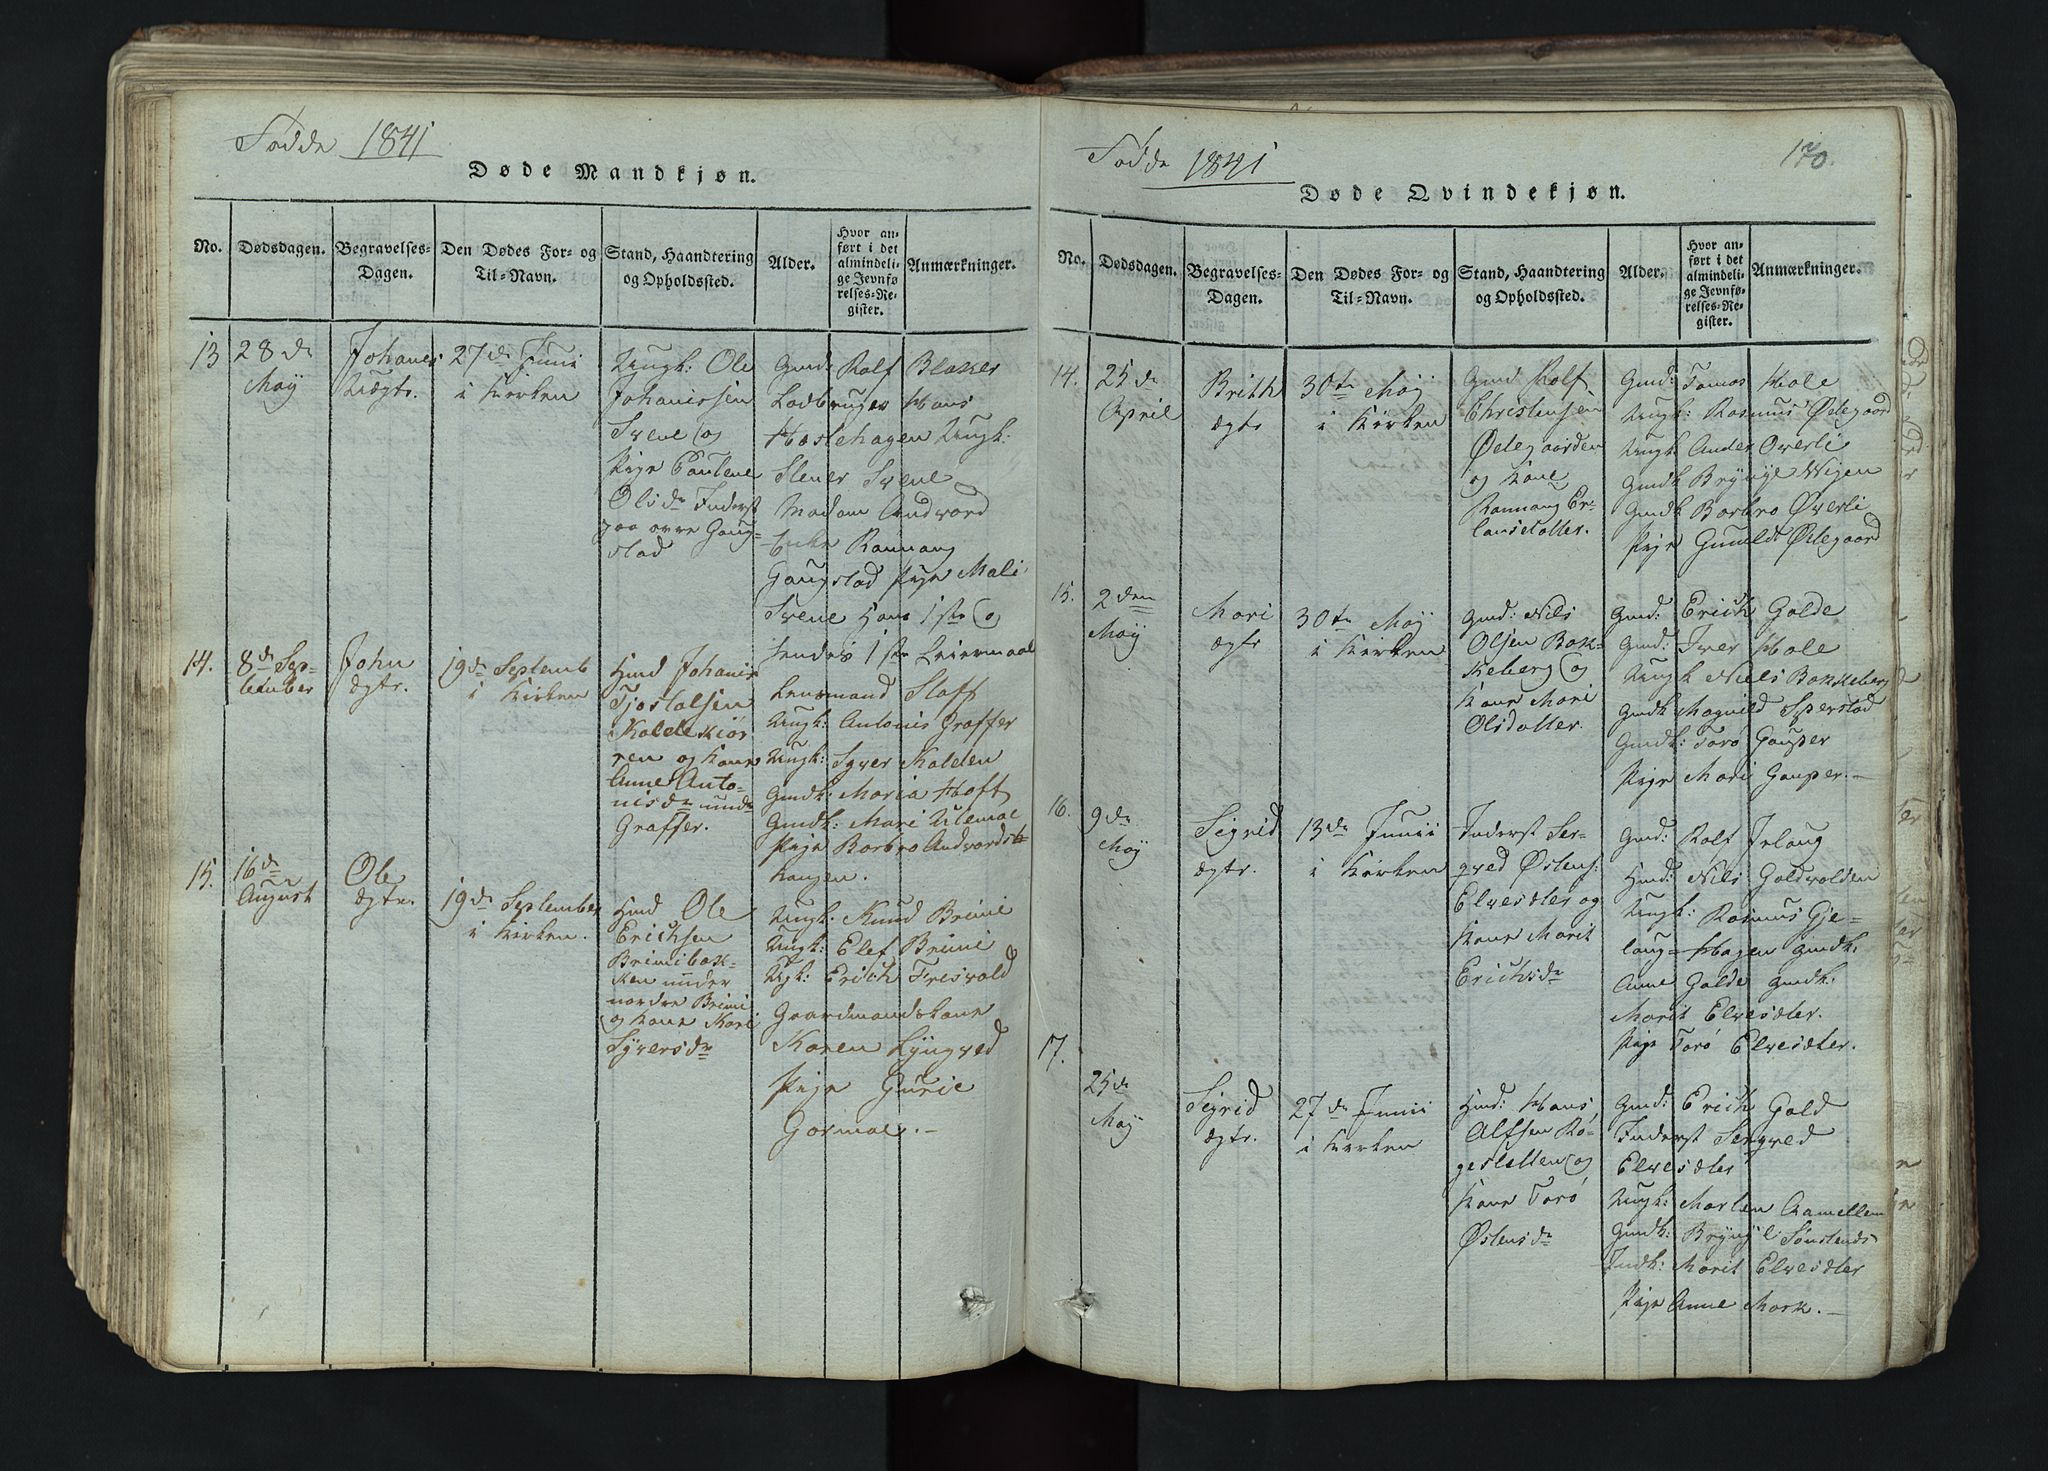 Fødde 1841
Døde Mandkjøn.
No.
Dødsdagen.
Begravelses-
Dagen.
Den Dødes For- og
Til-Navn.
Stand, Haandtering
og Opholdssted.
Alder.
Hvor an-
ført i det
almindeli-
ge Jevnfø-
relses-Re-
gister.
Anmærkninger.
13
28de
May
Johanes
Uægte.
27de Junii
i Kirken
Ungk: Ole
Johanissen
Svene og
Pige Pauline
Olsdr Inderst
paa øvre Goug-
stad
Gmd: Rolf Blaker
Ladbruger Hans
Haslehagen Ungk:
Stener Svene
Madam Andvord
Enke Rannang
Gougstad Pige Mali
Svene Hans 1ste og
hendes 1ste Leiermaal
14.
8de Sep-
tember
John
ægte.
19de Septemb
i Kirken
Hmd Johanis
Tjostolsen
Kolden
ren og Kone
Anne Anto-
nisdr under
Graffer.
Lensmand Staff
Ungk: Antonis Graffer
Ungk: Syver Kolden
Gmdk: Maria Hoft
Gmdk: Mari Ulemoe
Pige Barbro Andvords-
haugen.
15.
16de
August
Ole
ægte.
19de September
i Kirken.
Hmd Ole
Erichsen
Brimibak-
ken under
nordre Brimi
og Kone Kari
Syversdr
Ungk: Knud Brimi
Ungk: Elef Brimi
Ugk: Erich Fresvold
Gaardmandskone
Karen Lyngved
Pige Gurie
Gormoe. —
Fødde 1841
170.
Døde Qvindekjøn.
No.
Dødsdagen.
Begravelses-
Dagen.
Den Dødes For- og
Til-Navn.
Stand, Haandtering
og Opholdssted.
Alder.
Hvor an-
ført i det
almindeli-
ge Jevnfø-
relses-Re-
gister.
Anmærkninger.
14.
25de
April
Brith
ægte
30te May
i Kirken
Gmd Rolf
Christensen
Ødegaarden
og Kone
Rannang Er-
landsdatter.
Gmd: Tomas Hole
Ungk: Rasmus Ødegaard
Ungk Anders Øverli
Gmdk Brynjel Wigen
Gmdk Barbro Øverli
Pige Guneldt Ødegaard
15.
2den
May
Mari
ægte
30te May
i Kirken
Gmd: Nils
Olsen Bak-
keberg og
Kone Mari
Olsdatter.
Gmd: Erich Golde
Gmd: Iver Hole
Ungk Niels Bakkeberg
Gmdk Magnild Sperstad
Gmdk: Torø Gouper
Pige Mari Gouper. —
16.
9de
May
Sigrid
ægte.
13de Junii
i Kirken
Inderst Ser-
qved Østens:
Elvesæter og
Kone Marit
Erichsdr
Gmd: Rolf Frisaug
Hmd: Nils Goldvolden
Ungk: Rasmus Gje-
laug-Hagen Gmdk:
Anne Golde Gmdk.
Marit Elvesæter.
Pige Torø Elvesæter.
17.
25de
May
Sigrid
ægte.
27de Junii
i Kirken
Hmd: Hans
Alfsen Rø-
gesletten og
Kone Torø
Østensdr
Gmd: Erich Gold
Inderst Serqved
Elvesæter
Ungk: Morten Aamellem
Gmdk: Brynjel Sønstends
Indk: Marit Elvesæter
Pige Anne Mork. —